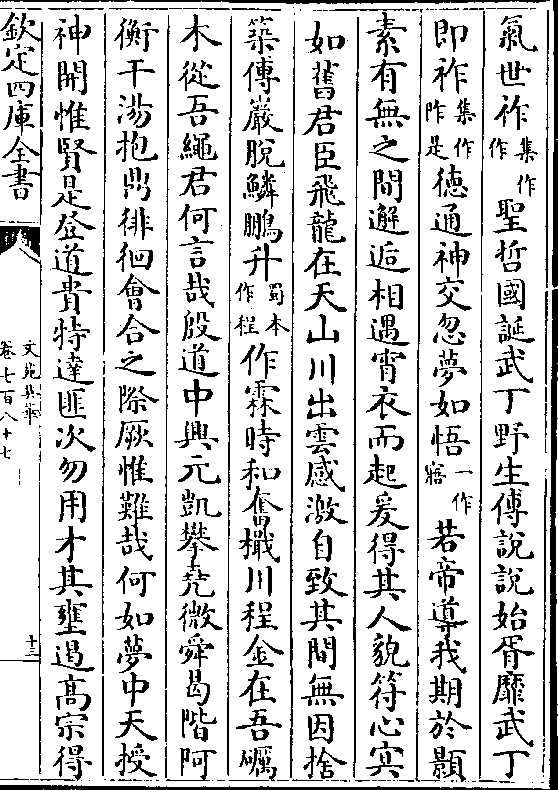 氣世祚集作作聖哲國誕武丁野生傅說說始胥靡武丁
即祚集作阼是德通神交忽夢如悟一作寤若帝導我期於顥
素有無之間邂逅相遇宵衣而起爰得其人貌符心㝠
如舊君臣飛龍在天山川出雲感激自致其間無因捨
築傅巖脫鱗鵬升蜀本作程作霖時和奮檝川程金在吾礪
木從吾繩君何言哉殷道中興元凱攀堯微舜曷階阿
衡干湯抱鼎徘徊會合之際厥惟難哉何如夢中天授
神開惟賢是登道貴特達匪次勿用才其壅遏高宗得
欽定四庫全書
文苑英華
卷七百八十七
十三